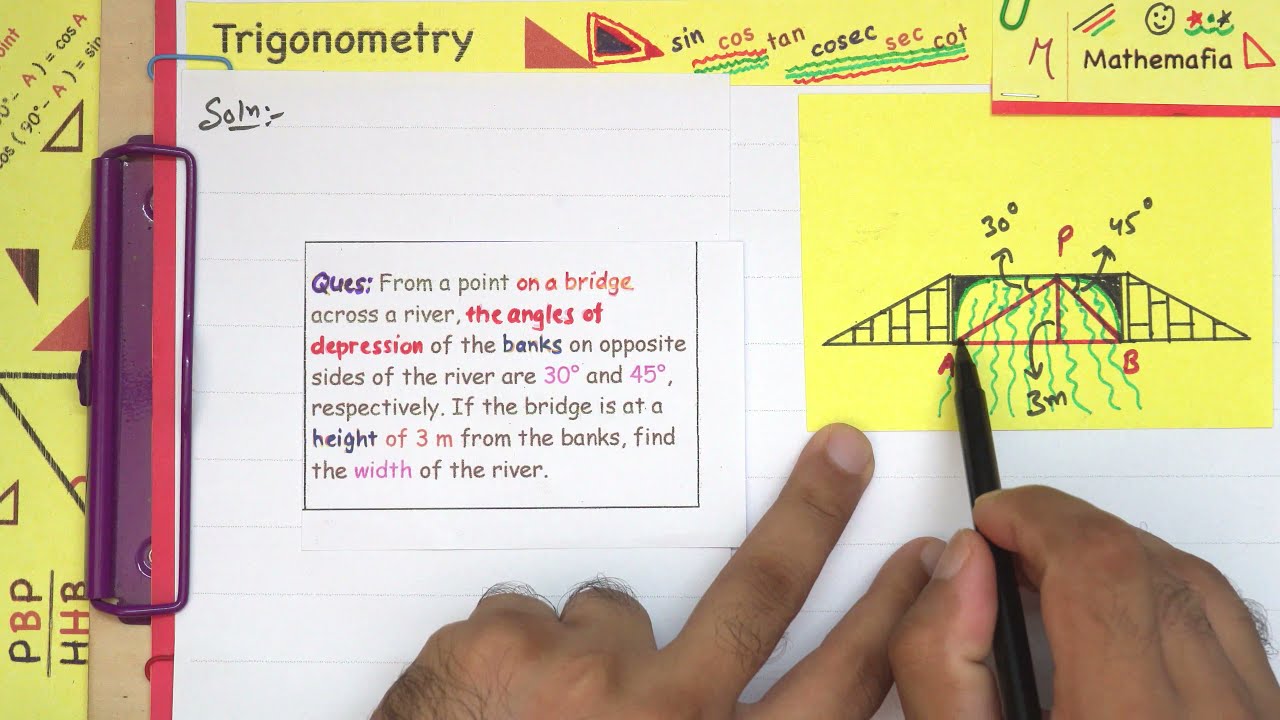 Trigonometry
sin cos tan
cosec sec cot
M
Mathemafia
Soln:-
Ques: From a point on a bridge
across a river, the angles of
depression of the banks on opposite
sides of the river are 30° and 45°,
respectively. If the bridge is at a
height of 3 m from the banks, find
the width of the river.
30°
P
45°
A
B
3m
- A) = cos A
cos (90° - A) = sin
PBP
HHB